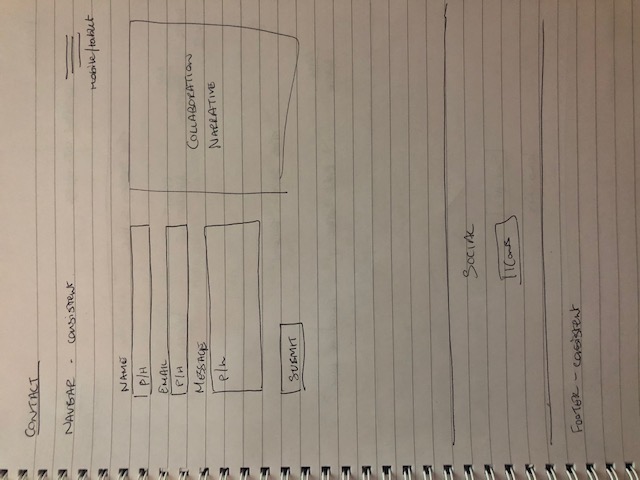 CONTACT
NAVBAR - consistent
Mobile/tablet
NAME
P/H
EMAIL
P/H
MESSAGE
P/H
SUBMIT
COLLABORATION
NARRATIVE
SOCIAL
Icons
FOOTER - consistent